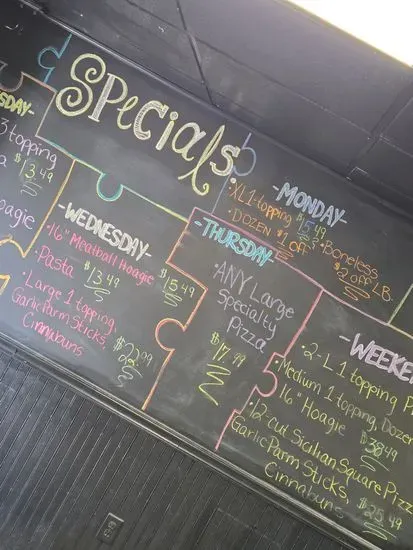 Specials
SDAY-
3 topping
$13.49
oagie
-WEDNESDAY-
• 16" Meatball Hoagie
$15.49
• Pasta $13.49
• Large 1 topping,
Garlic Parm Sticks,
Cinnabuns
$22.99
-THURSDAY-
• ANY Large
Specialty
Pizza
$17.99
-MONDAY-
• XL 1-topping $15.49
• DOZEN $1 off
• Boneless
$2 off LB.
WEEKE
• 2-L 1 topping P
• Medium 1 topping, Doze
16" Hoagie $38.49
• 12-cut Sicilian Square Pizz
Garlic Parm Sticks,
Cinnabuns $25.49